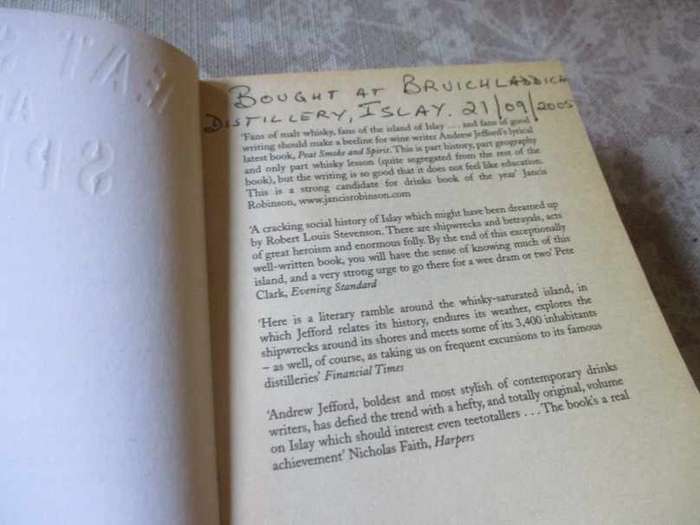 BOUGHT AT BRUICHLADDICH
DISTILLERY, ISLAY. 21/09/2005
'Fans of malt whisky, fans of the island of Islay . . . and fans of good
writing should make a beeline for wine writer Andrew Jefford's lyrical
latest book, Peat Smoke and Spirit. This is part history, part geography
and only part whisky lesson (quite segregated from the rest of the
book), but the writing is so good that it does not feel like education.
This is a strong candidate for drinks book of the year' Jancis
Robinson, www.jancisrobinson.com
'A cracking social history of Islay which might have been dreamed up
by Robert Louis Stevenson. There are shipwrecks and betrayals, acts
of great heroism and enormous folly. By the end of this exceptionally
well-written book, you will have the sense of knowing much of this
island, and a very strong urge to go there for a wee dram or two' Pete
Clark, Evening Standard
'Here is a literary ramble around the whisky-saturated island, in
which Jefford relates its history, endures its weather, explores the
shipwrecks around its shores and meets some of its 3,400 inhabitants
– as well, of course, as taking us on frequent excursions to its famous
distilleries' Financial Times
'Andrew Jefford, boldest and most stylish of contemporary drinks
writers, has defied the trend with a hefty, and totally original, volume
on Islay which should interest even teetotallers . . . The book's a real
achievement' Nicholas Faith, Harpers